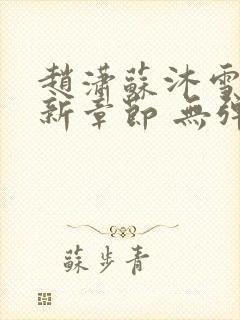 趙瀟蘇沐雪
新章節 無彈
蘇步青